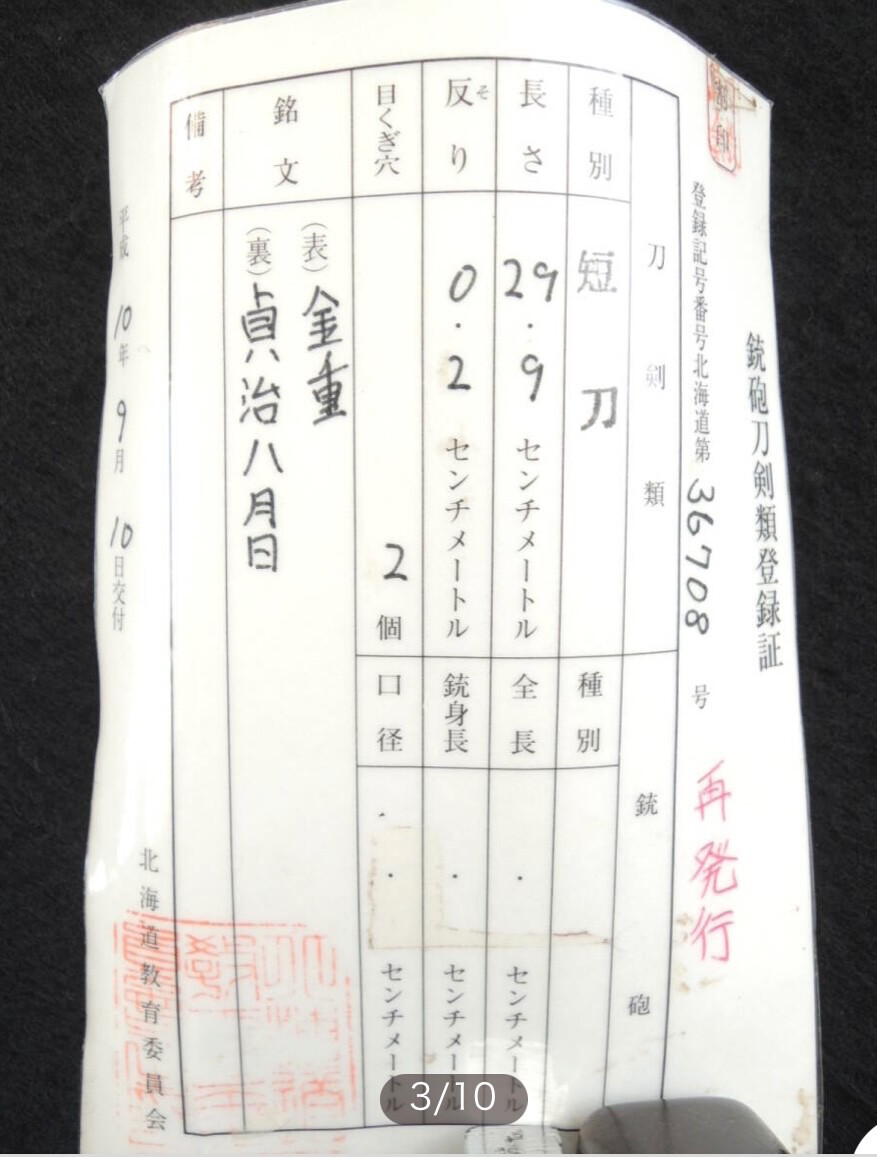 銃砲刀剣類登録証
登録記号番号北海道第36708号
再発行
刀剣類
銃砲
種別
短刀
種別
長さ
29.9センチメートル
全長
・センチメートル
反り
そ
0.2センチメートル
銃身長
・センチメートル
目くぎ穴
2個
口径
・センチメートル
銘文
(表)金重
(裏)貞治八月日
備考
平成10年9月10日交付
北海道教育委員会
3/10